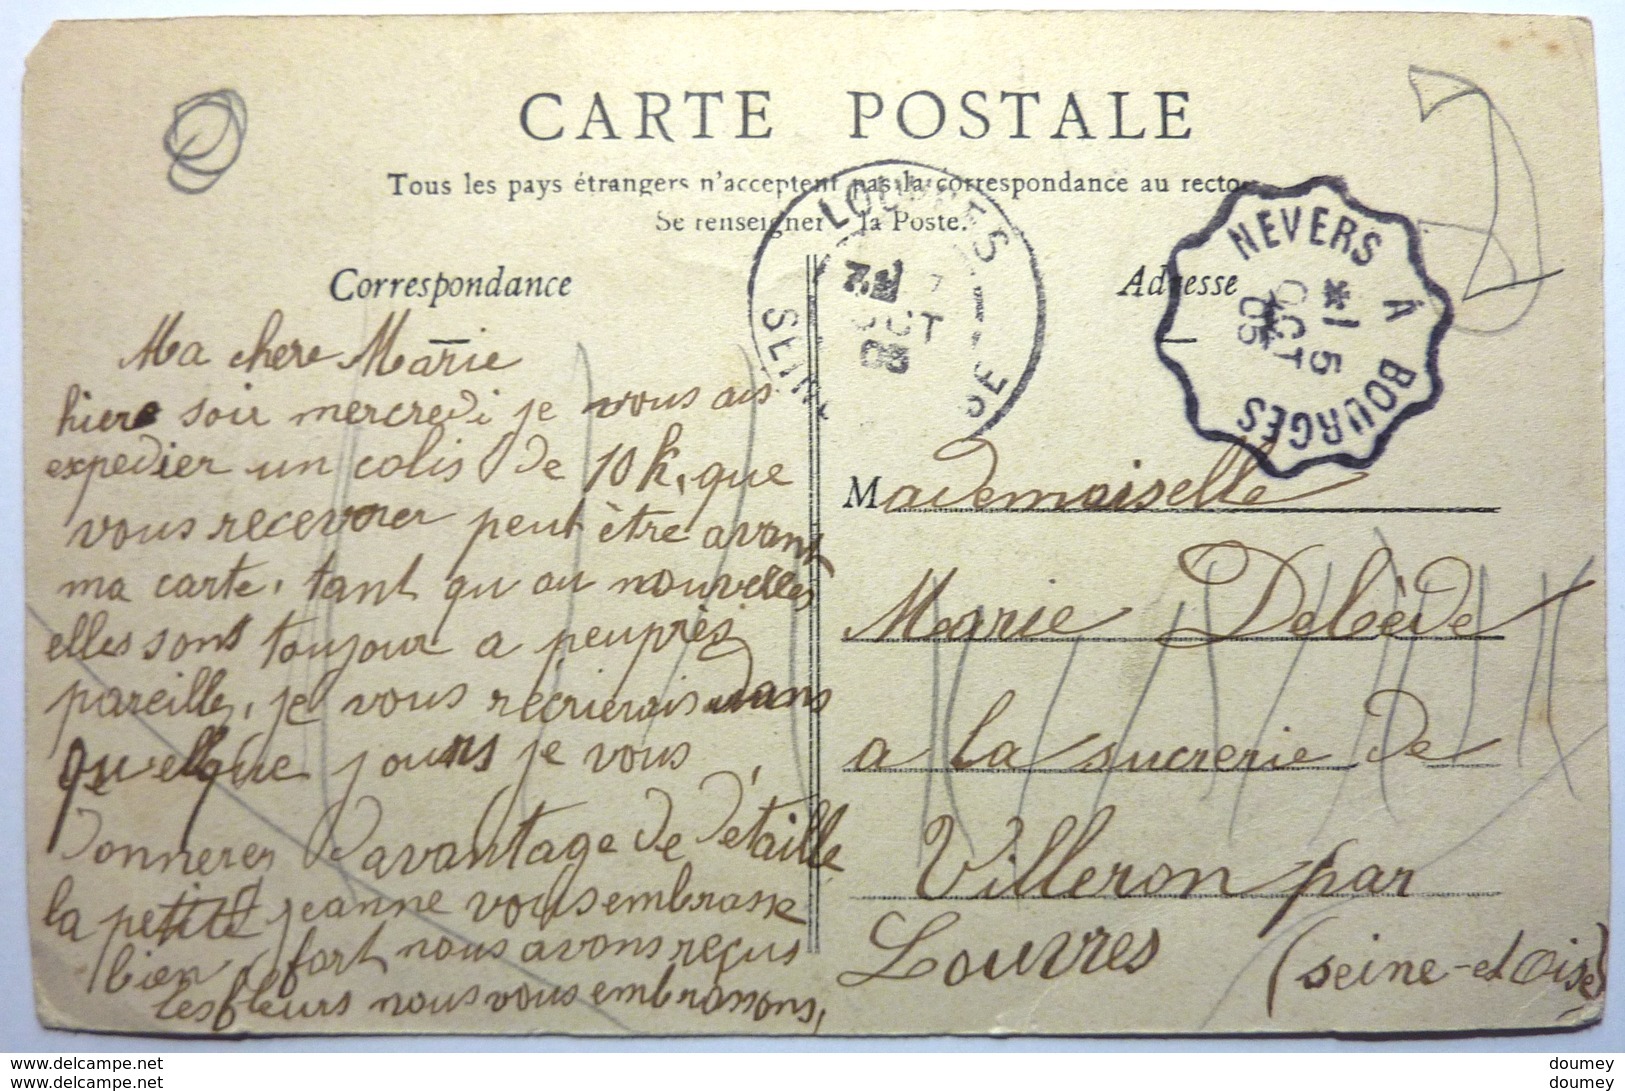 CARTE POSTALE
Tous les pays étrangers n'acceptent pas la correspondance au recto
Se renseigner la Poste.
Correspondance
Ma chere Marie
hiere soir mercredi je vous ais
expedier un colis de 10 k, que
vous recevrer peut être avant
ma carte, tant qu au nouvelles
elles sont toujour a peuprès
pareille, je vous récrierais dans
quelque jours je vous
donnerer davantage de détaille
la petite jeanne vous embrasse
bien fort nous avons reçus
les fleurs nous vous embrassons,
LOUVRES
SEINE
OISE
OCT
NEVERS À BOURGES
*1
15
OCT
05
Adresse
Mademoiselle
Marie Debède
a la sucrerie de
Villeron par
Louvres (seine-et Oise)
www.delcampe.net doumey
www.delcampe.net doumey